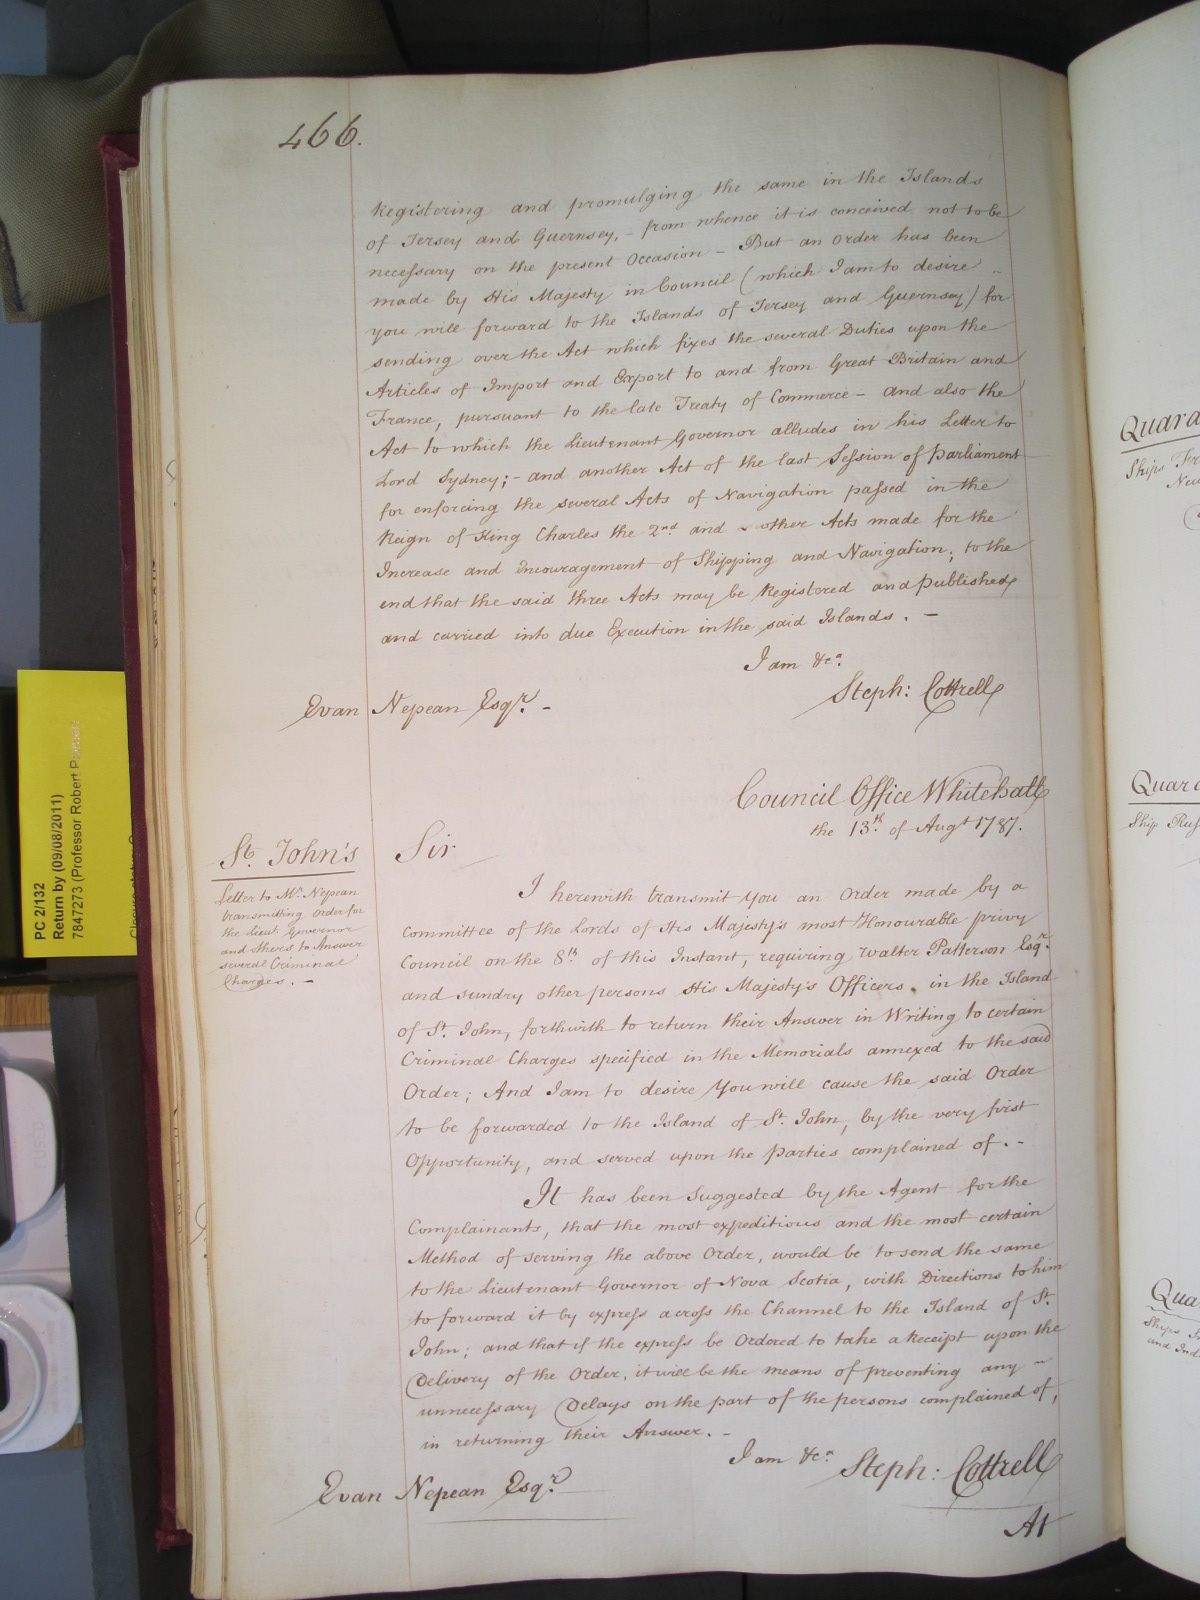 466.
Registering and promulging the same in the Islands
of Jersey and Guernsey, - from whence it is conceived not to be
necessary on the present Occasion - But an Order has been
made by His Majesty in Council (which I am to desire -
you will forward to the Islands of Jersey and Guernsey) for
sending over the Act which fixes the several Duties upon the
Articles of Import and Export to and from Great Britain and
France, pursuant to the late Treaty of Commerce - and also the
Act to which the Lieutenant Governor alludes in his Letter to
Lord Sydney; - and another Act of the last Session of Parliament
for enforcing the several Acts of Navigation passed in the
Reign of King Charles the 2nd. and other Acts made for the
Increase and Encouragement of Shipping and Navigation; to the
end that the said three Acts may be Registered and published
and carried into due Execution in the said Islands. -
I am &ca.
Steph: Cottrell
Evan Nepean Esqr. -
Council Office Whitehall
the 13th. of Augt 1787.
St. John's
Letter to Mr. Nepean
transmitting Order for
the Lieut. Governor
and others to Answer
several Criminal
Charges. -
Sir
I herewith transmit you an Order made by a
Committee of the Lords of His Majesty's most Honourable privy
Council on the 8th. of this Instant, requiring Walter Patterson Esqr.
and sundry other persons His Majesty's Officers. in the Island
of St. John, forthwith to return their Answer in Writing to certain
Criminal Charges specified in the Memorials annexed to the said
Order; And I am to desire You will cause the said Order
to be forwarded to the Island of St. John, by the very first
Opportunity, and served upon the parties complained of. -
It has been Suggested by the Agent for the
Complainants, that the most expeditious and the most certain
Method of serving the above Order, would be to send the same
to the Lieutenant Governor of Nova Scotia, with Directions to him
to forward it by express across the Channel to the Island of St.
John; and that if the express be Ordered to take a Receipt upon the
Delivery of the Order, it will be the means of preventing any -
unnecessary Delays on the part of the persons complained of,
in returning their Answer. -
I am &ca. Steph: Cottrell
Evan Nepean Esqr.
At
PC 2/132
Return by (09/08/2011)
7847273 (Professor Robert
Quara
Ships
Quara
Ship
Qua
Ships
and Ind